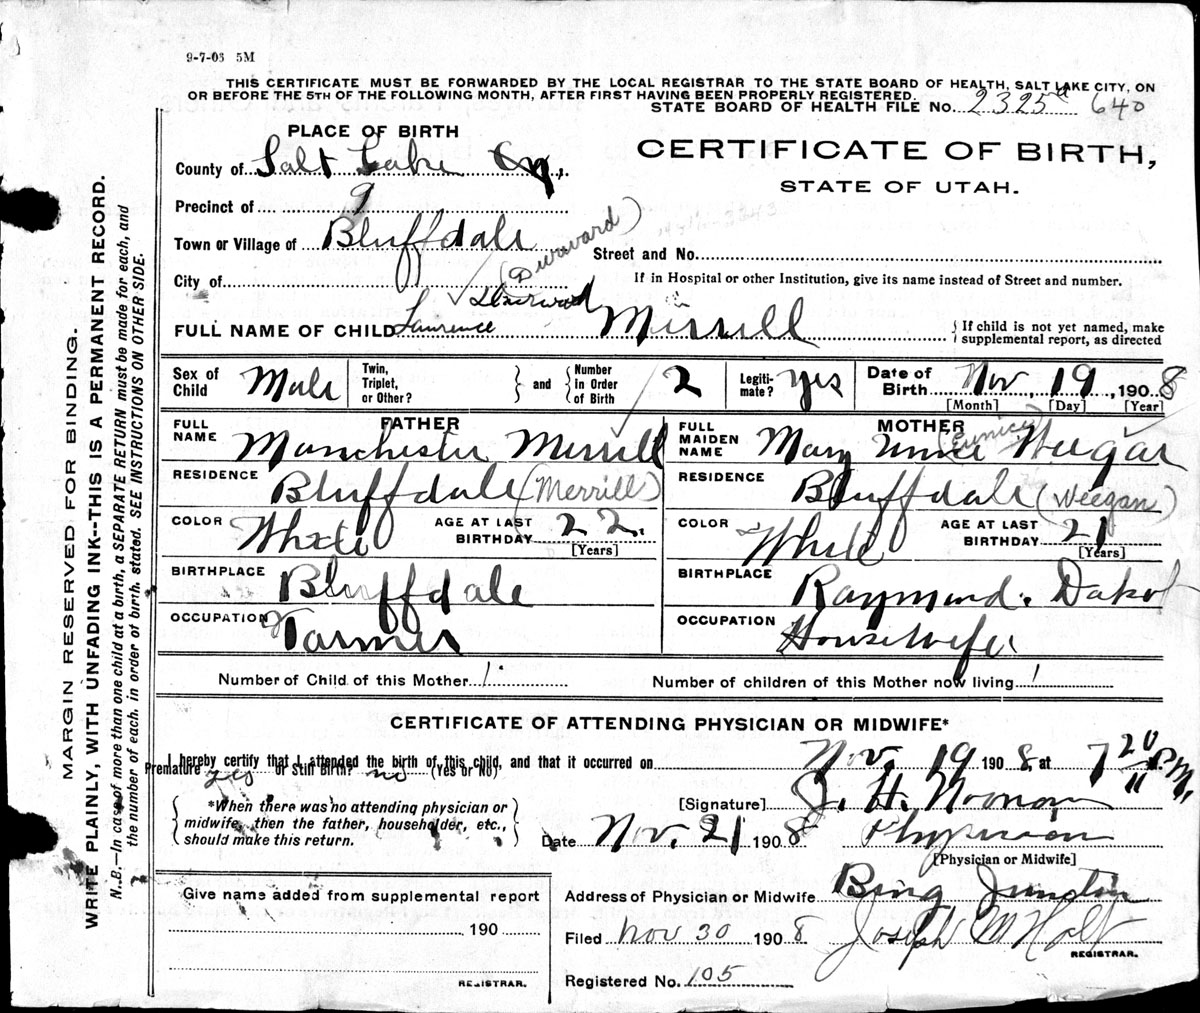 9-7-03 5M
THIS CERTIFICATE MUST BE FORWARDED BY THE LOCAL REGISTRAR TO THE STATE BOARD OF HEALTH, SALT LAKE CITY, ON
OR BEFORE THE 5TH OF THE FOLLOWING MONTH, AFTER FIRST HAVING BEEN PROPERLY REGISTERED.
STATE BOARD OF HEALTH FILE No. 2325 640
PLACE OF BIRTH
CERTIFICATE OF BIRTH,
STATE OF UTAH.
County of Salt Lake
Precinct of 9
Town or Village of Bluffdale
(Durward)
Street and No.
City of
If in Hospital or other Institution, give its name instead of Street and number.
FULL NAME OF CHILD Lawrence Durward Merrill
{ If child is not yet named, make
supplemental report, as directed
Sex of Child Male
Twin, Triplet, or Other? } and { Number In Order of Birth 2
Legitimate? yes
Date of Birth Nov, 19, 1908
[Month] [Day] [Year]
FATHER
FULL NAME Manchester Merrill
RESIDENCE Bluffdale (Merrill)
COLOR White AGE AT LAST BIRTHDAY 22. [Years]
BIRTHPLACE Bluffdale
OCCUPATION Farmer
MOTHER
FULL MAIDEN NAME Mary (Eunice) Weegar
RESIDENCE Bluffdale (Weegan)
COLOR White AGE AT LAST BIRTHDAY 21 [Years]
BIRTHPLACE Raymond. Dakot
OCCUPATION Housewife
Number of Child of this Mother 1
Number of children of this Mother now living 1
CERTIFICATE OF ATTENDING PHYSICIAN OR MIDWIFE*
I hereby certify that I attended the birth of this child, and that it occurred on Nov. 19 1908, at 7 20 P.M.
Premature yes or Still Birth? no (Yes or No)
{ *When there was no attending physician or
midwife, then the father, householder, etc.,
should make this return. }
[Signature] J. H. Noonan
Date Nov. 21 1908 Physician
[Physician or Midwife]
Give name added from supplemental report
190
REGISTRAR.
Address of Physician or Midwife Bing Junction
Filed Nov 30 1908 Joseph M Holt
REGISTRAR.
Registered No. 105
MARGIN RESERVED FOR BINDING.
WRITE PLAINLY, WITH UNFADING INK--THIS IS A PERMANENT RECORD.
N. B.—In case of more than one child at a birth, a SEPARATE RETURN must be made for each, and
the number of each, in order of birth, stated. SEE INSTRUCTIONS ON OTHER SIDE.